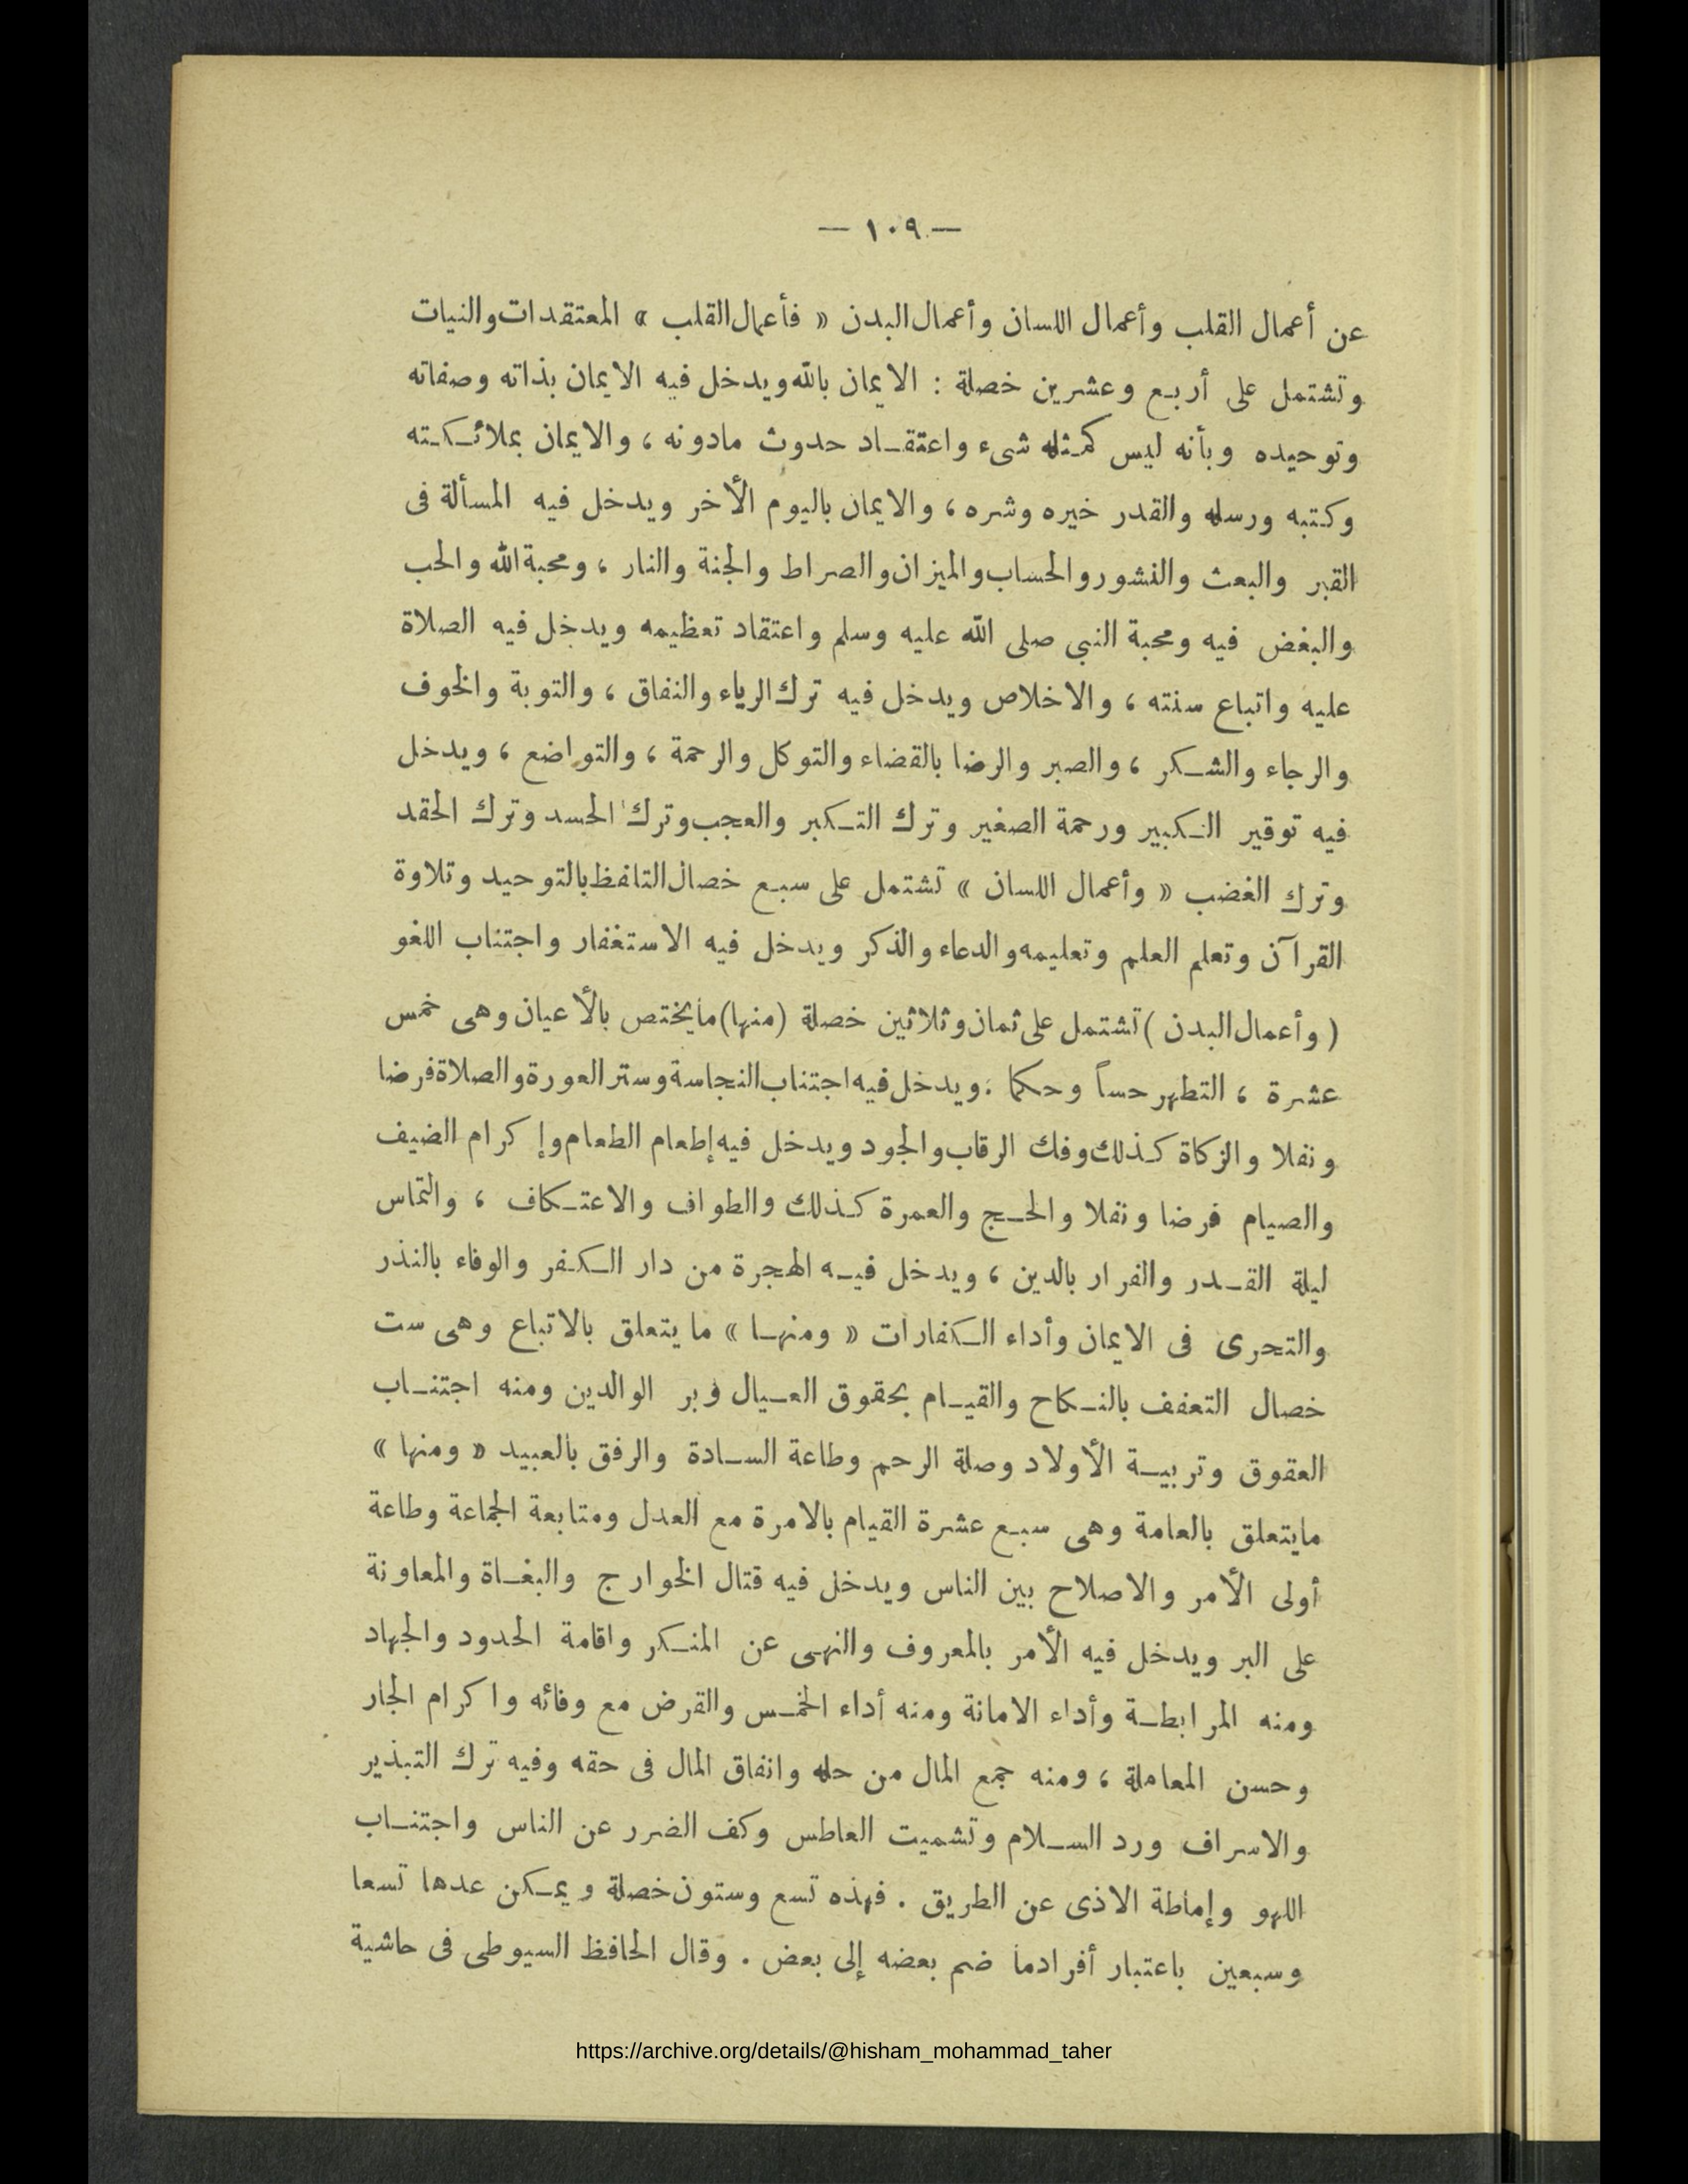 — ١٠٩ —
عن أعمال القلب وأعمال اللسان وأعمال البدن « فأعمال القلب » المعتقدات والنيات
وتشتمل على أربع وعشرين خصلة : الايمان بالله ويدخل فيه الايمان بذاته وصفاته
وتوحيده وبأنه ليس كمثله شىء واعتقاد حدوث مادونه ، والايمان بملائكته
وكتبه ورسله والقدر خيره وشره ، والايمان باليوم الأخر ويدخل فيه المسألة فى
القبر والبعث والنشور والحساب والميزان والصراط والجنة والنار ، ومحبة الله والحب
والبغض فيه ومحبة النبي صلى الله عليه وسلم واعتقاد تعظيمه ويدخل فيه الصلاة
عليه واتباع سنته ، والاخلاص ويدخل فيه ترك الرياء والنفاق ، والتوبة والخوف
والرجاء والشكر ، والصبر والرضا بالقضاء والتوكل والرحمة ، والتواضع ، ويدخل
فيه توقير الكبير ورحمة الصغير وترك التكبر والعجب وترك الحسد وترك الحقد
وترك الغضب « وأعمال اللسان » تشتمل على سبع خصال التلفظ بالتوحيد وتلاوة
القرآن وتعلم العلم وتعليمه والدعاء والذكر ويدخل فيه الاستغفار واجتناب اللغو
( وأعمال البدن ) تشتمل على ثمان وثلاثين خصلة (منها) مايختص بالأعيان وهى خمس
عشرة ، التطهر حساً وحكما . ويدخل فيه اجتناب النجاسة وستر العورة والصلاة فرضا
ونفلا والزكاة كذلك وفك الرقاب والجود ويدخل فيه إطعام الطعام وإكرام الضيف
والصيام فرضا ونفلا والحج والعمرة كذلك والطواف والاعتكاف ، والتماس
ليلة القدر والفرار بالدين ، ويدخل فيه الهجرة من دار الكفر والوفاء بالنذر
والتحرى فى الايمان وأداء الكفارات « ومنها » ما يتعلق بالاتباع وهى ست
خصال التعفف بالنكاح والقيام بحقوق العيال وبر الوالدين ومنه اجتناب
العقوق وتربية الأولاد وصلة الرحم وطاعة السادة والرفق بالعبيد « ومنها »
مايتعلق بالعامة وهى سبع عشرة القيام بالامرة مع العدل ومتابعة الجماعة وطاعة
أولى الأمر والاصلاح بين الناس ويدخل فيه قتال الخوارج والبغاة والمعاونة
على البر ويدخل فيه الأمر بالمعروف والنهى عن المنكر واقامة الحدود والجهاد
ومنه المرابطة وأداء الامانة ومنه أداء الخمس والقرض مع وفائه واكرام الجار
وحسن المعاملة ، ومنه جمع المال من حله وانفاق المال فى حقه وفيه ترك التبذير
والاسراف ورد السلام وتشميت العاطس وكف الضرر عن الناس واجتناب
اللهو وإماطة الاذى عن الطريق . فهذه تسع وستون خصلة ويمكن عدها تسعا
وسبعين باعتبار أفرادما ضم بعضه إلى بعض . وقال الحافظ السيوطى فى حاشية
https://archive.org/details/@hisham_mohammad_taher